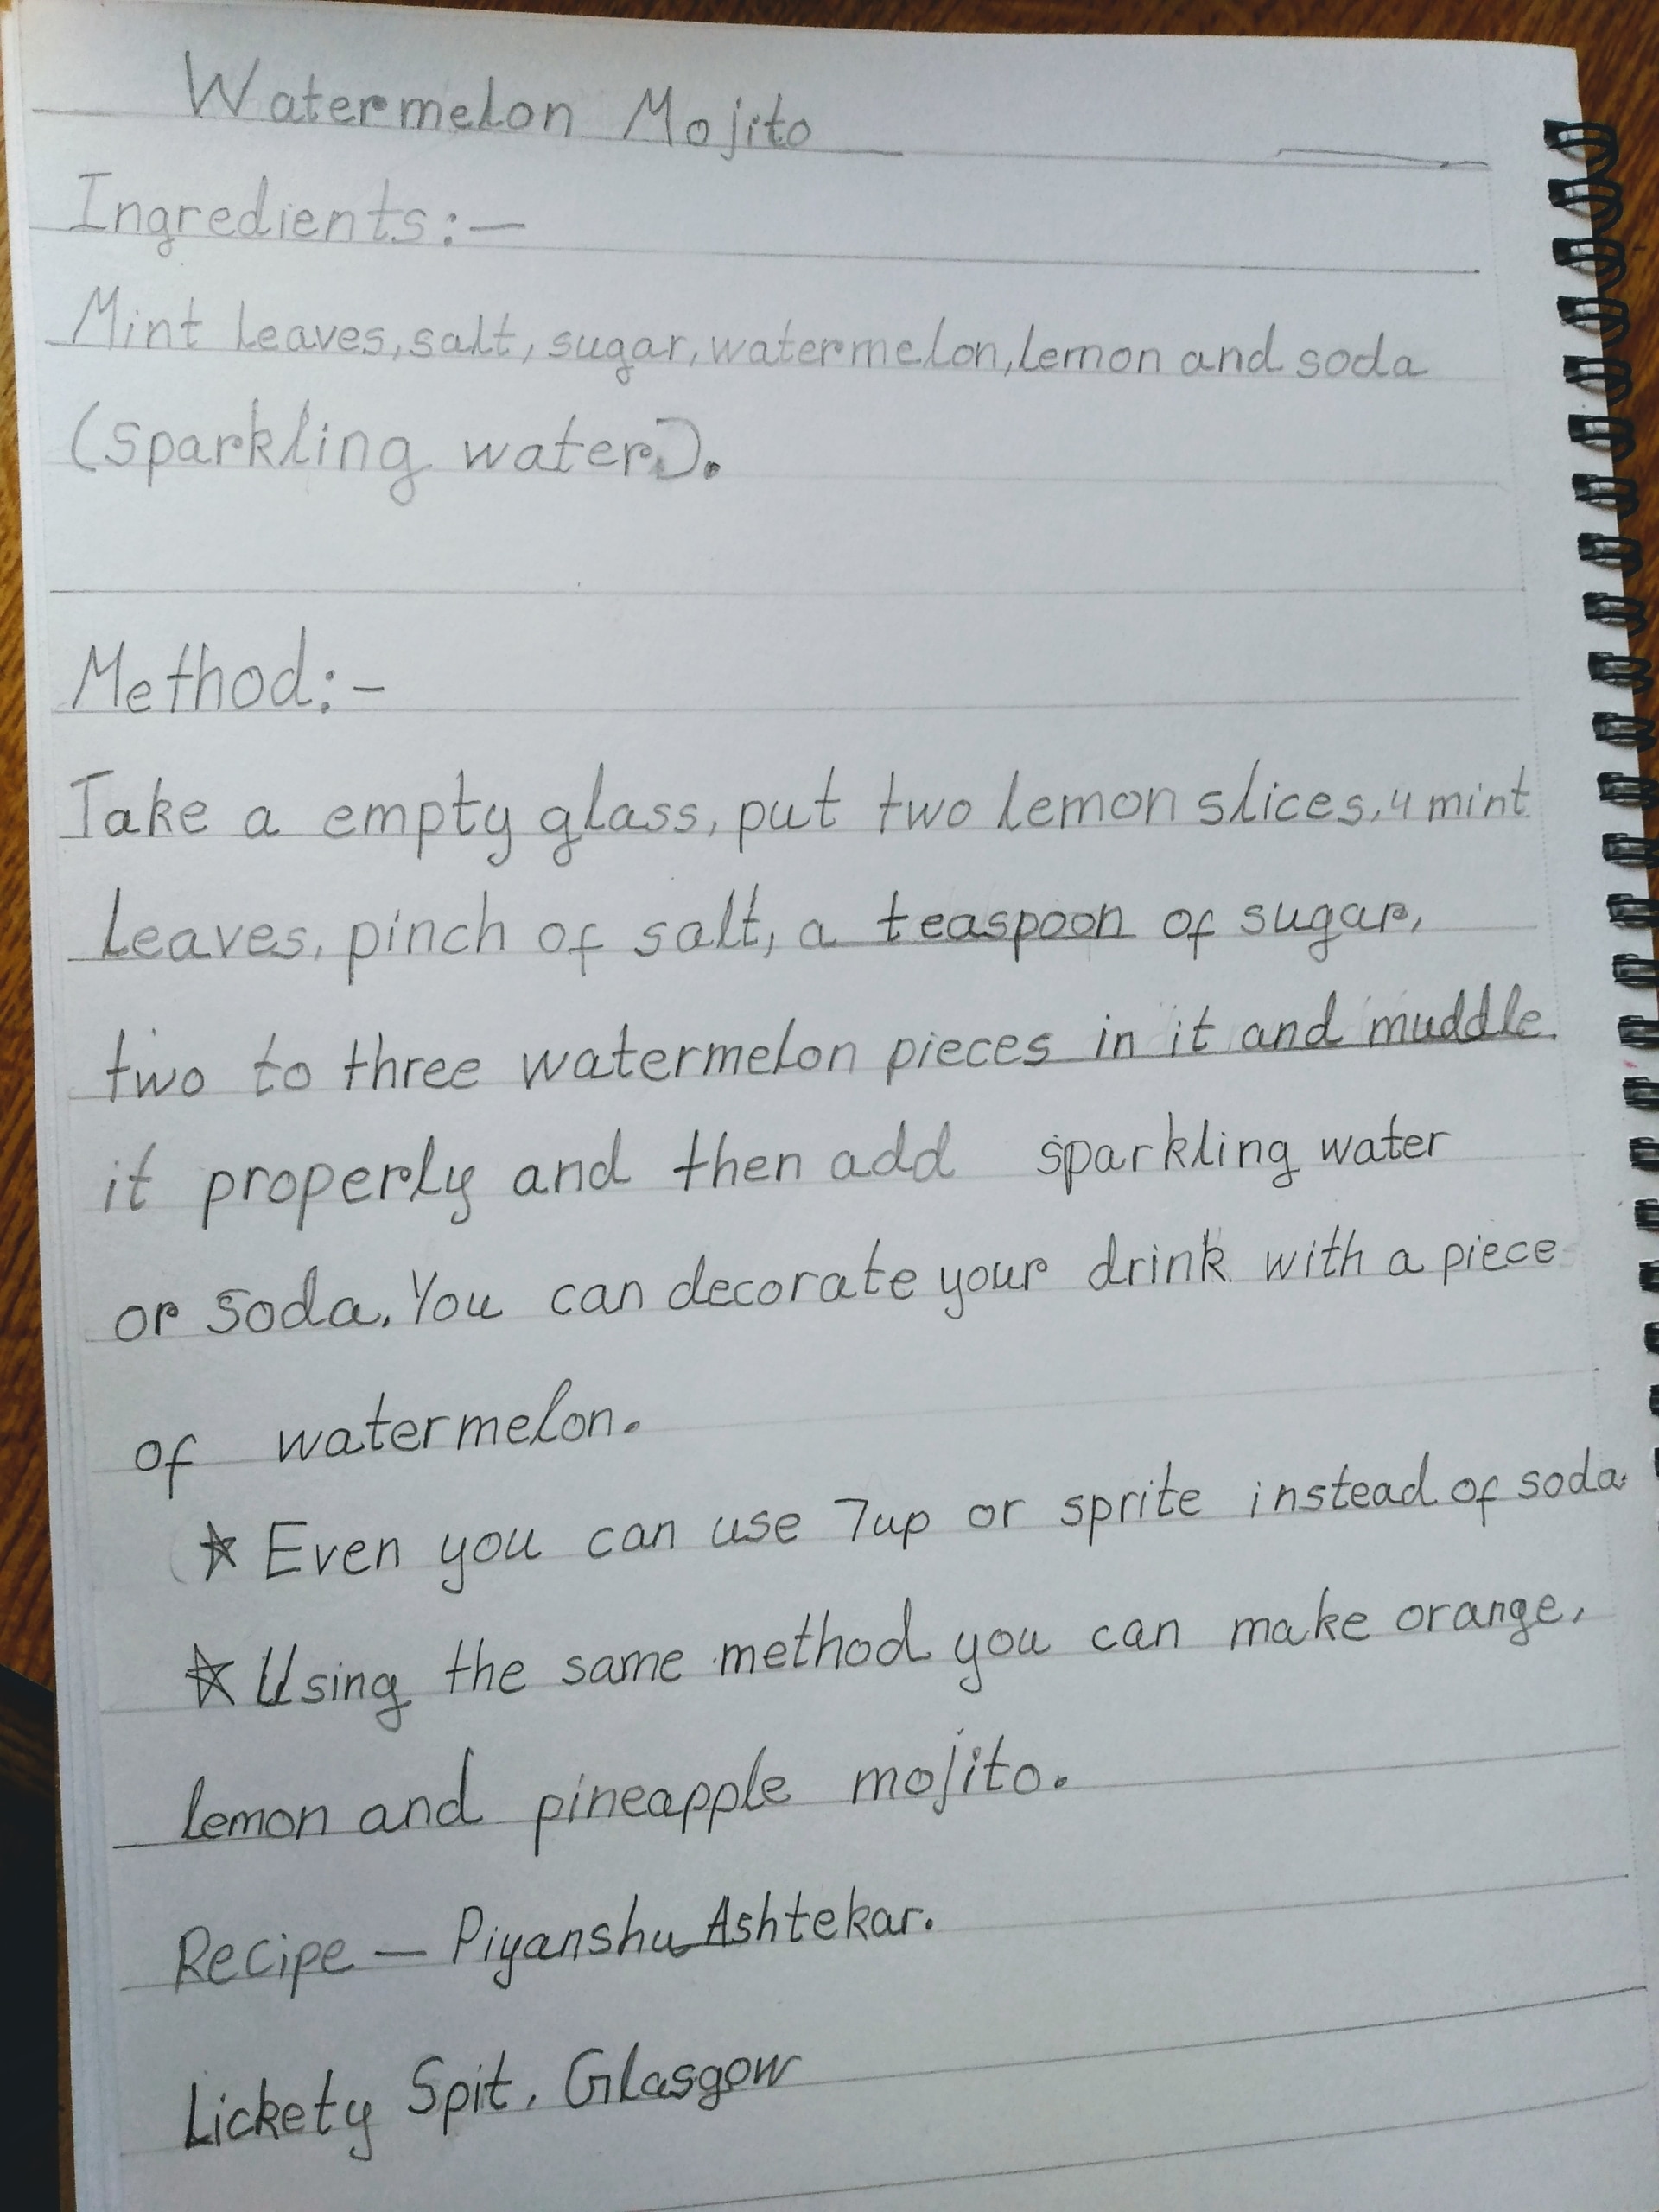 Watermelon Mojito
Ingredients:-
Mint leaves, salt, sugar, watermelon, lemon and soda
(sparkling water).
Method:-
Take a empty glass, put two lemon slices, 4 mint
leaves, pinch of salt, a teaspoon of sugar,
two to three watermelon pieces in it and muddle
it properly and then add sparkling water
or soda. You can decorate your drink with a piece
of watermelon.
☆ Even you can use 7up or sprite instead of soda.
☆ Using the same method you can make orange,
lemon and pineapple mojito.
Recipe — Piyanshu Ashtekar.
Lickety Spit, Glasgow